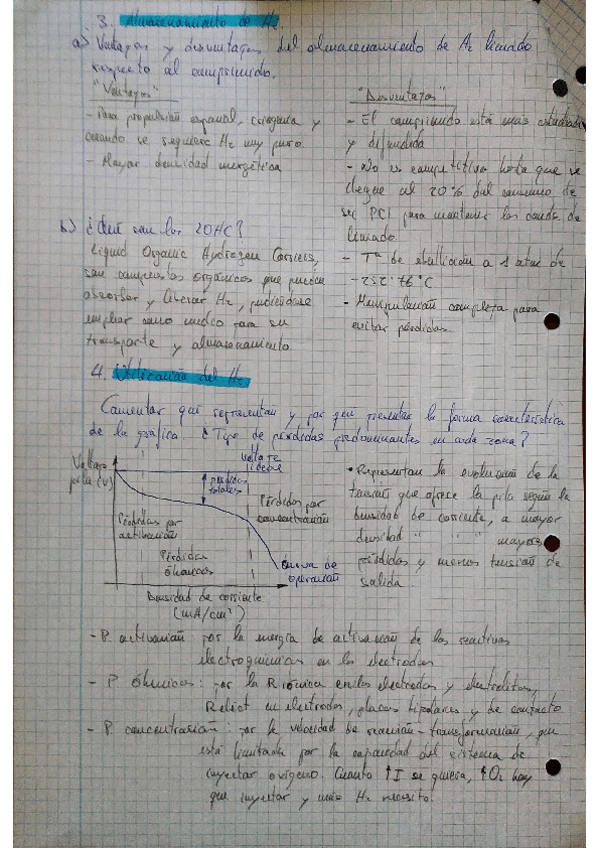 3. Almacenamiento de H₂
a) Ventajas y desventajas del almacenamiento de H₂ licuado
respecto al comprimido.
"Ventajas"
- Para propulsión espacial, criogenia y
cuando se requiere H₂ muy puro
- Mayor densidad energética
"Desventajas"
- El comprimido está más estudiado
y difundido
- No es competitivo hasta que se
llegue al 20% del consumo de
su PCI para mantener las condic. de
licuado.
- Tª de ebullición a 1 atm de
-252'76°C
- Manipulación compleja para
evitar pérdidas.
b) ¿Qué son los LOHC?
Liquid Organic Hydrogen Carriers,
son compuestos orgánicos que pueden
absorber y liberar H₂, pudiéndose
emplear como medio para su
transporte y almacenamiento.
4. Utilización del H₂
Comentar qué representan y por qué presentan la forma característica
de la gráfica. ¿Tipo de pérdidas predominantes en cada zona?
Voltaje
pila (V)
voltaje
ideal
pérdidas
totales
Pérdidas por
activación
Pérdidas
óhmicas
Pérdidas por
concentración
Curva de
operación
Densidad de corriente
(mA/cm²)
• Representan la evolución de la
tensión que ofrece la pila según la
densidad de corriente, a mayor
densidad " " mayores
pérdidas y menos tensión de
salida.
- P activación: por la energía de activación de los reactivos
electroquímicos en los electrodos
- P óhmicas: por la R iónica en los electrodos y electrolitos,
R elect en electrodos, placas bipolares y de contacto
- P concentración: por la velocidad de reacción-transformación, que
está limitada por la capacidad del sistema de
inyectar oxígeno. Cuanto ↑I se quiera, ↑O₂ hay
que inyectar y más H₂ necesito.